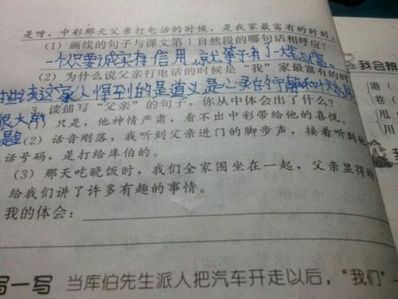 是呀,中彩那天父亲打电话的时候,是我家最富有的时刻。
(1) 画线的句子与课文第1自然段的哪句话相呼应?
一个人只要活得诚实、有信用,就等于有了一大笔财富。
(2) 为什么说父亲打电话的时候是“我”家最富有的时
3. 读描写“父亲”的句子,你从中体会出了什么?
只是,他神情严肃,看不出中彩带给他的喜悦。
(2) 话音刚落,我听到父亲进门的脚步声,接着听到他
话号码,是打给库伯的。
(3) 那天吃晚饭时,我们全家围坐在一起,父亲显得特
给我们讲了许多有趣的事情。
我的体会:
写一写 当库伯先生派人把汽车开走以后,“我们”
我会根